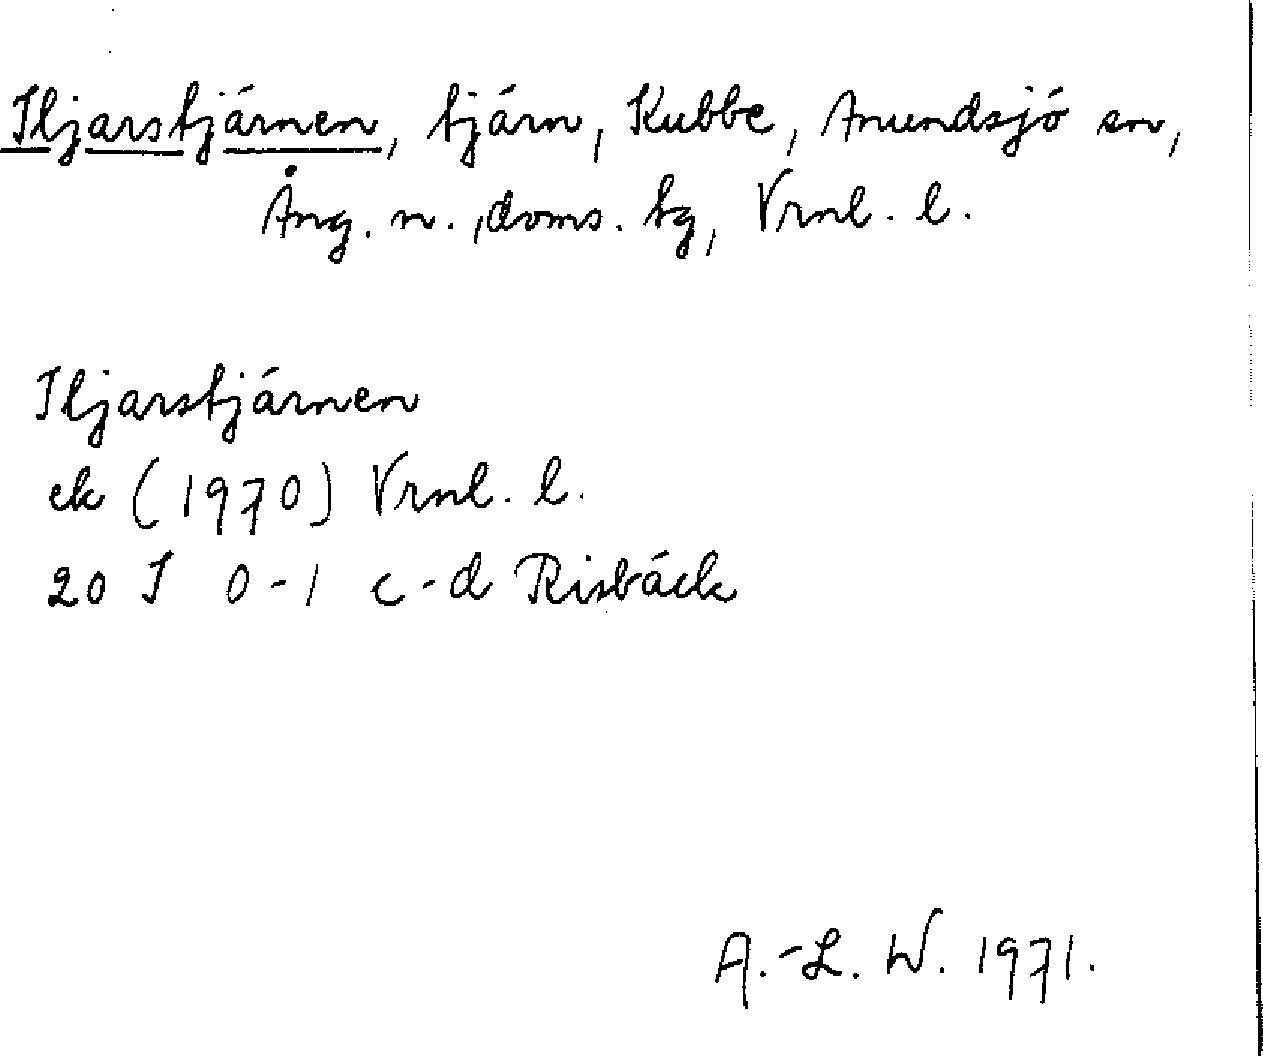 Iljarstjärnen, tjärn, Kubbe, Anundsjö sn,
Ång. n. ,doms. tg, Vrnl. l.
Iljarstjärnen
ek (1970) Vrnl. l.
20 I 0-1 c-d Risbäck
A.-L. W. 1971.